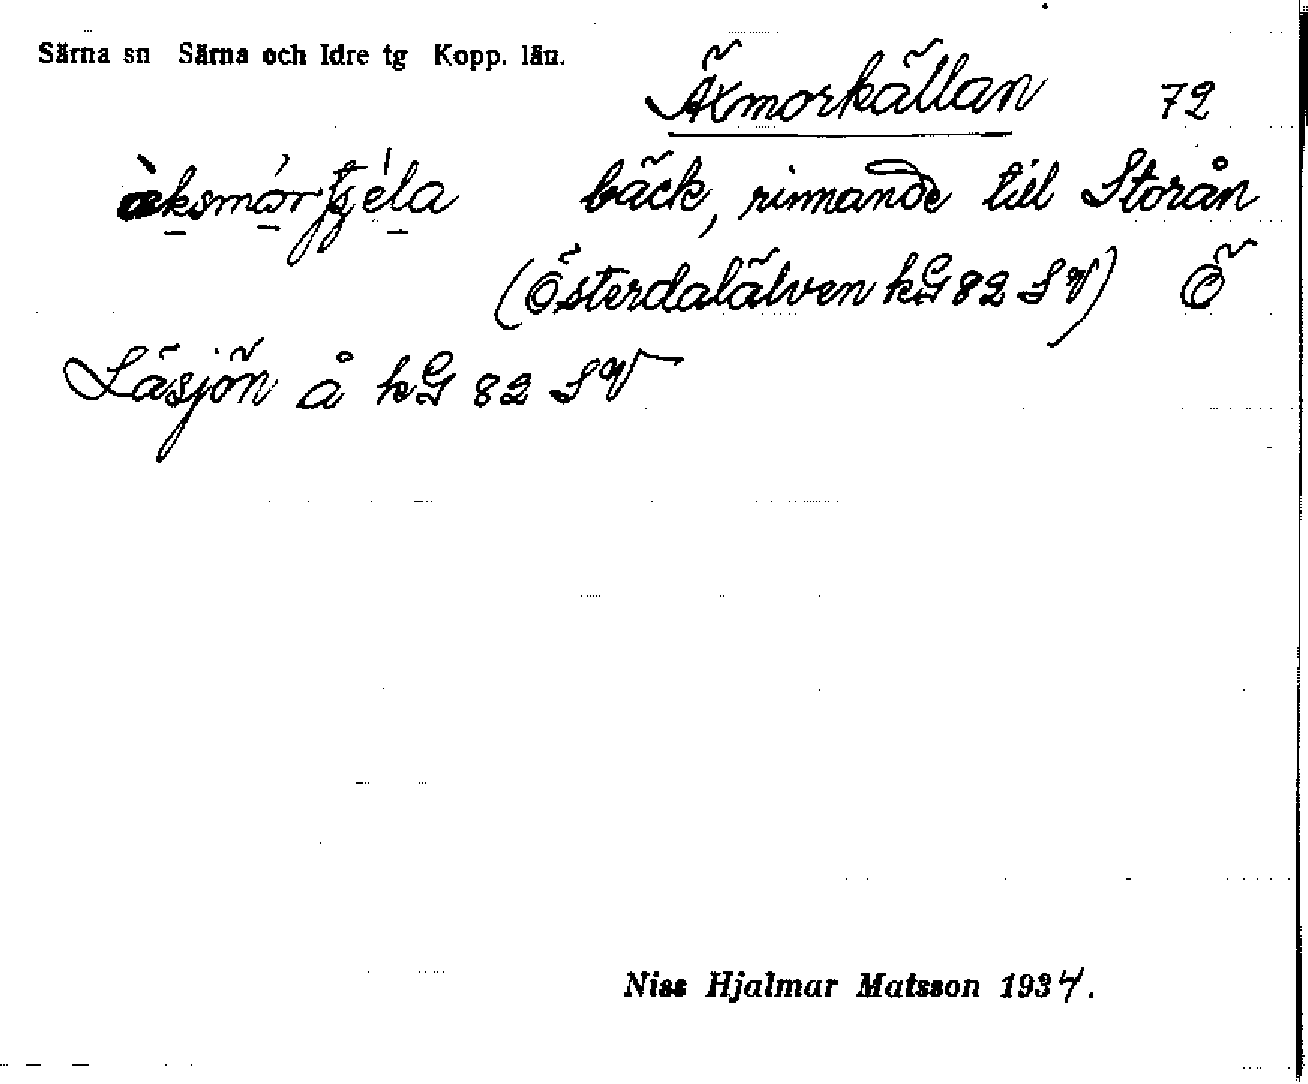 Särna sn Särna och Idre tg Kopp. län.
Äxmorkällan 72
bäck, rinnande till Storån
(Österdalälven kG 82 SV) Ö
Läsjön å kG 82 SV
Niss Hjalmar Matsson 1934.